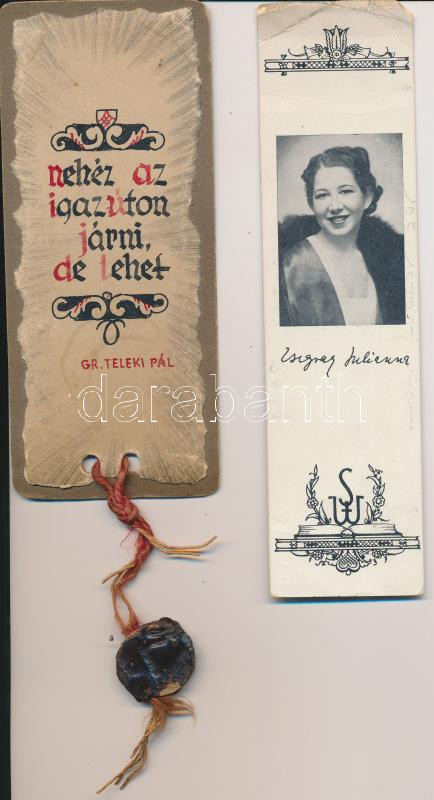 nehéz az
igazúton
járni,
de lehet
GR. TELEKI PÁL
darabanth
Zsigray Julianna
SW